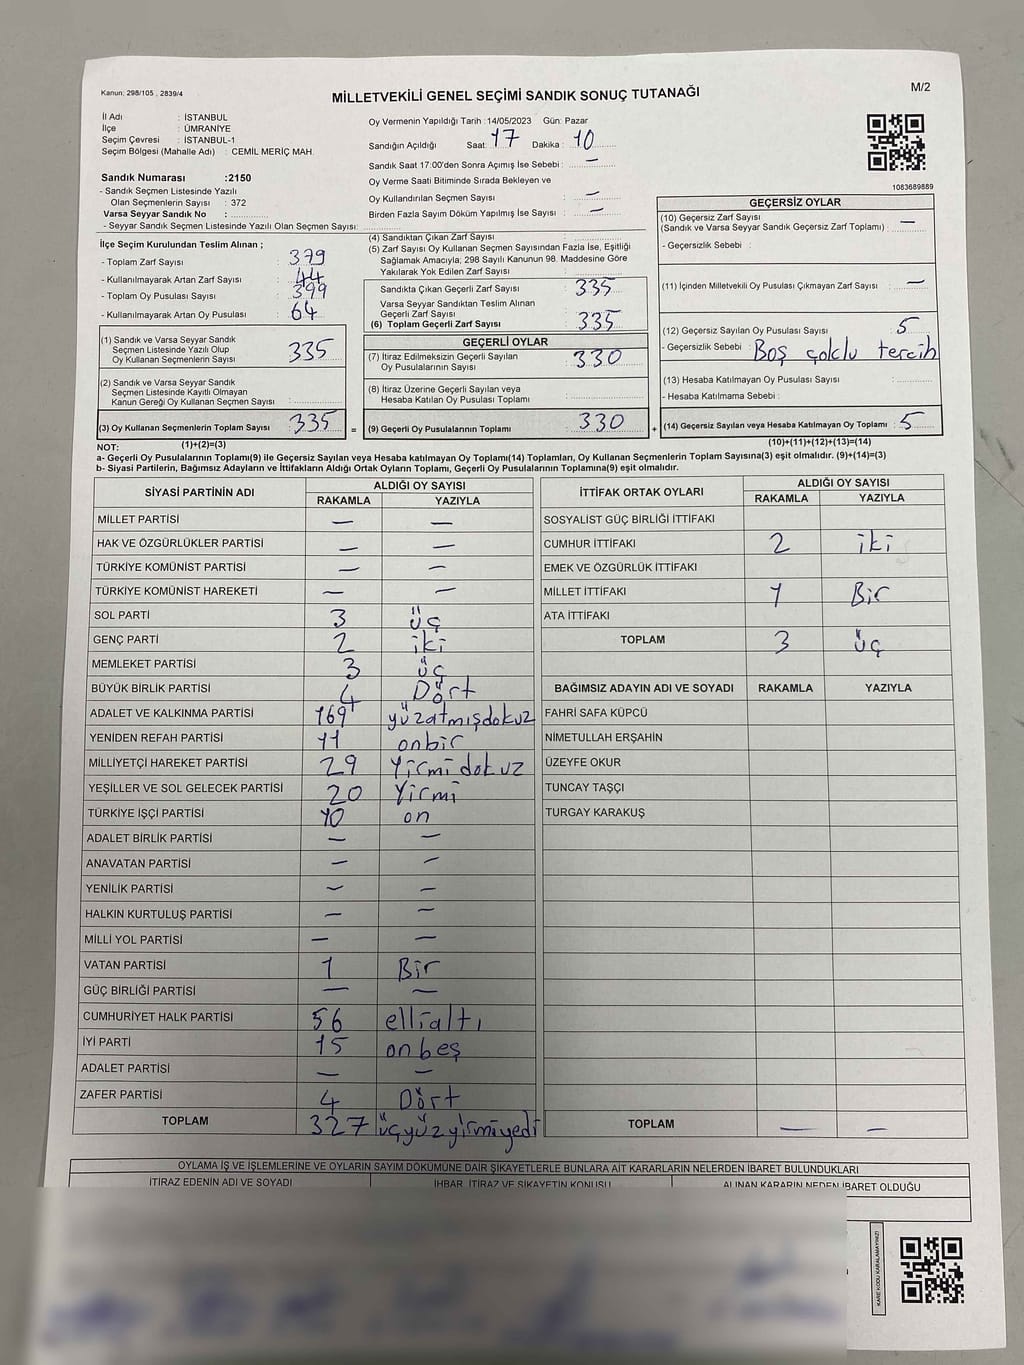 Kanun: 298/105 , 2839/4
MİLLETVEKİLİ GENEL SEÇİMİ SANDIK SONUÇ TUTANAĞI
M/2
İl Adı : İSTANBUL
İlçe : ÜMRANİYE
Seçim Çevresi : İSTANBUL-1
Seçim Bölgesi (Mahalle Adı) : CEMİL MERİÇ MAH.
Sandık Numarası :2150
- Sandık Seçmen Listesinde Yazılı
Olan Seçmenlerin Sayısı : 372
Varsa Seyyar Sandık No :
- Seyyar Sandık Seçmen Listesinde Yazılı Olan Seçmen Sayısı:
Oy Vermenin Yapıldığı Tarih : 14/05/2023 Gün: Pazar
Sandığın Açıldığı Saat: 17 Dakika : 10
Sandık Saat 17:00'den Sonra Açımış İse Sebebi : —
Oy Verme Saati Bitiminde Sırada Bekleyen ve
Oy Kullandırılan Seçmen Sayısı : —
Birden Fazla Sayım Döküm Yapılmış İse Sayısı : —
1083689889
İlçe Seçim Kurulundan Teslim Alınan ;
- Toplam Zarf Sayısı : 379
- Kullanılmayarak Artan Zarf Sayısı : 44
- Toplam Oy Pusulası Sayısı : 399
- Kullanılmayarak Artan Oy Pusulası : 64
(1) Sandık ve Varsa Seyyar Sandık
Seçmen Listesinde Yazılı Olup
Oy Kullanan Seçmenlerin Sayısı : 335
(2) Sandık ve Varsa Seyyar Sandık
Seçmen Listesinde Kayıtlı Olmayan
Kanun Gereği Oy Kullanan Seçmen Sayısı :
(3) Oy Kullanan Seçmenlerin Toplam Sayısı : 335
(4) Sandıktan Çıkan Zarf Sayısı :
(5) Zarf Sayısı Oy Kullanan Seçmen Sayısından Fazla İse, Eşitliği
Sağlamak Amacıyla; 298 Sayılı Kanunun 98. Maddesine Göre
Yakılarak Yok Edilen Zarf Sayısı :
Sandıkta Çıkan Geçerli Zarf Sayısı : 335
Varsa Seyyar Sandıktan Teslim Alınan
Geçerli Zarf Sayısı :
(6) Toplam Geçerli Zarf Sayısı : 335
GEÇERLİ OYLAR
(7) İtiraz Edilmeksizin Geçerli Sayılan
Oy Pusulalarının Sayısı : 330
(8) İtiraz Üzerine Geçerli Sayılan veya
Hesaba Katılan Oy Pusulası Toplamı :
= (9) Geçerli Oy Pusulalarının Toplamı : 330 +
GEÇERSİZ OYLAR
(10) Geçersiz Zarf Sayısı
(Sandık ve Varsa Seyyar Sandık Geçersiz Zarf Toplamı) : —
- Geçersizlik Sebebi :
(11) İçinden Milletvekili Oy Pusulası Çıkmayan Zarf Sayısı : —
(12) Geçersiz Sayılan Oy Pusulası Sayısı : 5
- Geçersizlik Sebebi : Boş çoklu tercih
(13) Hesaba Katılmayan Oy Pusulası Sayısı :
- Hesaba Katılmama Sebebi :
(14) Geçersiz Sayılan veya Hesaba Katılmayan Oy Pusulası Toplamı : 5
NOT: (1)+(2)=(3) (10)+(11)+(12)+(13)=(14)
a- Geçerli Oy Pusulalarının Toplamı(9) ile Geçersiz Sayılan veya Hesaba Katılmayan Oy Toplamı(14) Toplamları, Oy Kullanan Seçmenlerin Toplam Sayısına(3) eşit olmalıdır. (9)+(14)=(3)
b- Siyasi Partilerin, Bağımsız Adayların ve İttifakların Aldığı Ortak Oyların Toplamı, Geçerli Oy Pusulalarının Toplamına(9) eşit olmalıdır.
SİYASİ PARTİNİN ADI ALDIĞI OY SAYISI
RAKAMLA YAZIYLA
MİLLET PARTİSİ — —
HAK VE ÖZGÜRLÜKLER PARTİSİ — —
TÜRKİYE KOMÜNİST PARTİSİ — —
TÜRKİYE KOMÜNİST HAREKETİ — —
SOL PARTİ 3 üç
GENÇ PARTİ 2 iki
MEMLEKET PARTİSİ 3 üç
BÜYÜK BİRLİK PARTİSİ 4 Dört
ADALET VE KALKINMA PARTİSİ 169 yüzatmışdokuz
YENİDEN REFAH PARTİSİ 11 onbir
MİLLİYETÇİ HAREKET PARTİSİ 29 Yirmidokuz
YEŞİLLER VE SOL GELECEK PARTİSİ 20 Yirmi
TÜRKİYE İŞÇİ PARTİSİ 10 on
ADALET BİRLİK PARTİSİ — —
ANAVATAN PARTİSİ — —
YENİLİK PARTİSİ — —
HALKIN KURTULUŞ PARTİSİ — —
MİLLİ YOL PARTİSİ — —
VATAN PARTİSİ 1 Bir
GÜÇ BİRLİĞİ PARTİSİ — —
CUMHURİYET HALK PARTİSİ 56 ellialtı
İYİ PARTİ 15 onbeş
ADALET PARTİSİ — —
ZAFER PARTİSİ 4 Dört
TOPLAM 327 üçyüzyirmiyedi
İTTİFAK ORTAK OYLARI ALDIĞI OY SAYISI
RAKAMLA YAZIYLA
SOSYALİST GÜÇ BİRLİĞİ İTTİFAKI
CUMHUR İTTİFAKI 2 iki
EMEK VE ÖZGÜRLÜK İTTİFAKI
MİLLET İTTİFAKI 1 Bir
ATA İTTİFAKI
TOPLAM 3 üç
BAĞIMSIZ ADAYIN ADI VE SOYADI RAKAMLA YAZIYLA
FAHRİ SAFA KÜPCÜ
NİMETULLAH ERŞAHİN
ÜZEYFE OKUR
TUNCAY TAŞÇI
TURGAY KARAKUŞ
TOPLAM — —
OYLAMA İŞ VE İŞLEMLERİNE VE OYLARIN SAYIM DÖKÜMÜNE DAİR ŞİKAYETLERLE BUNLARA AİT KARARLARIN NELERDEN İBARET BULUNDUKLARI
İTİRAZ EDENİN ADI VE SOYADI İHBAR, İTİRAZ VE ŞİKAYETİN KONUSU ALINAN KARARIN NEDEN İBARET OLDUĞU
KARE KODU KARALAMAYINIZ!